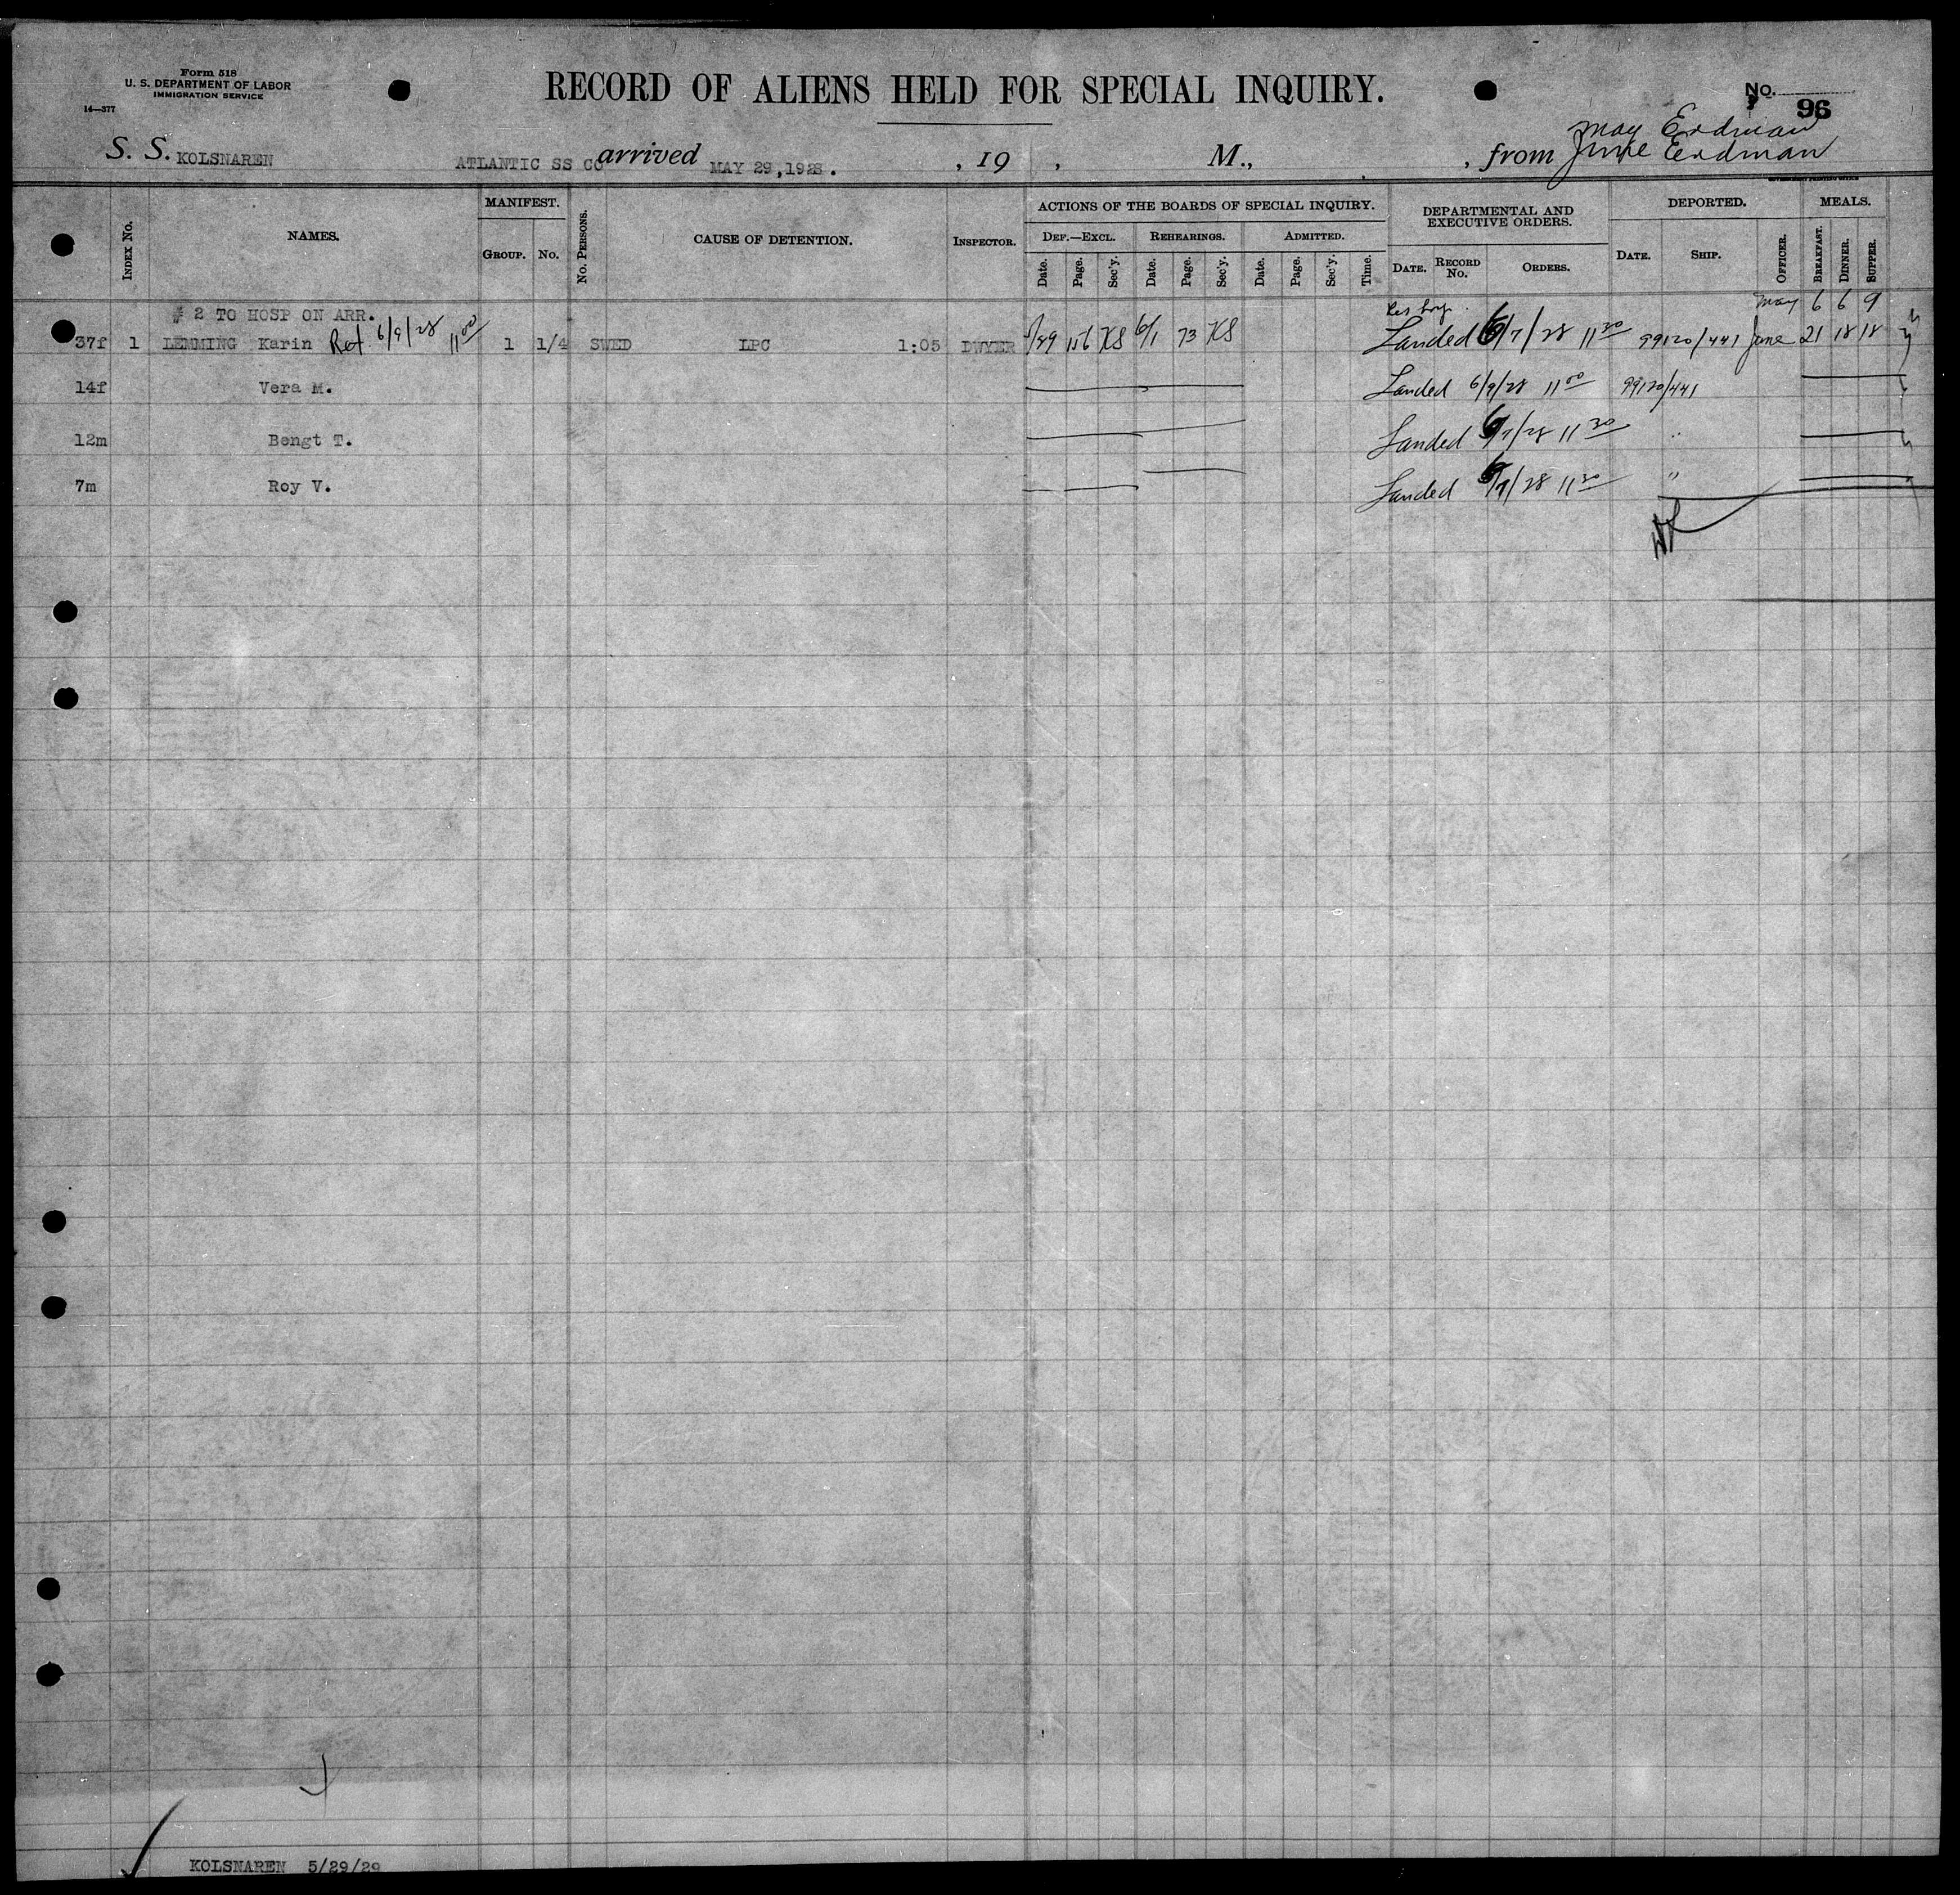 Form 518
U. S. DEPARTMENT OF LABOR
IMMIGRATION SERVICE
14—377
RECORD OF ALIENS HELD FOR SPECIAL INQUIRY.
No. 96
May Erdman
S. S. KOLSNAREN ATLANTIC SS CO arrived MAY 29, 1928. , 19 , M., , from June Erdman
GOVERNMENT PRINTING OFFICE
INDEX No. NAMES. MANIFEST. GROUP. No. No. PERSONS. CAUSE OF DETENTION. INSPECTOR.
ACTIONS OF THE BOARDS OF SPECIAL INQUIRY.
DEF.—EXCL. REHEARINGS. ADMITTED.
Date. Page. Sec'y. Date. Page. Sec'y. Date. Page. Sec'y. Time.
DEPARTMENTAL AND EXECUTIVE ORDERS.
DATE. RECORD No. ORDERS.
DEPORTED.
DATE. SHIP. OFFICER.
MEALS.
BREAKFAST. DINNER. SUPPER.
# 2 TO HOSP ON ARR. May 6 6 9
37f 1 LEMMING Karin Ret 6/9/28 11 00 1 1/4 SWED LPC 1:05 DWYER /29 156 KS 6/1 73 KS Landed 6/7/28 11 30 99120/441 June 21 18 18
14f Vera M. Landed 6/9/28 11 00 99120/441
12m Bengt T. Landed 6/7/28 11 30 "
7m Roy V. Landed 6/7/28 11 30 "
KOLSNAREN 5/29/29